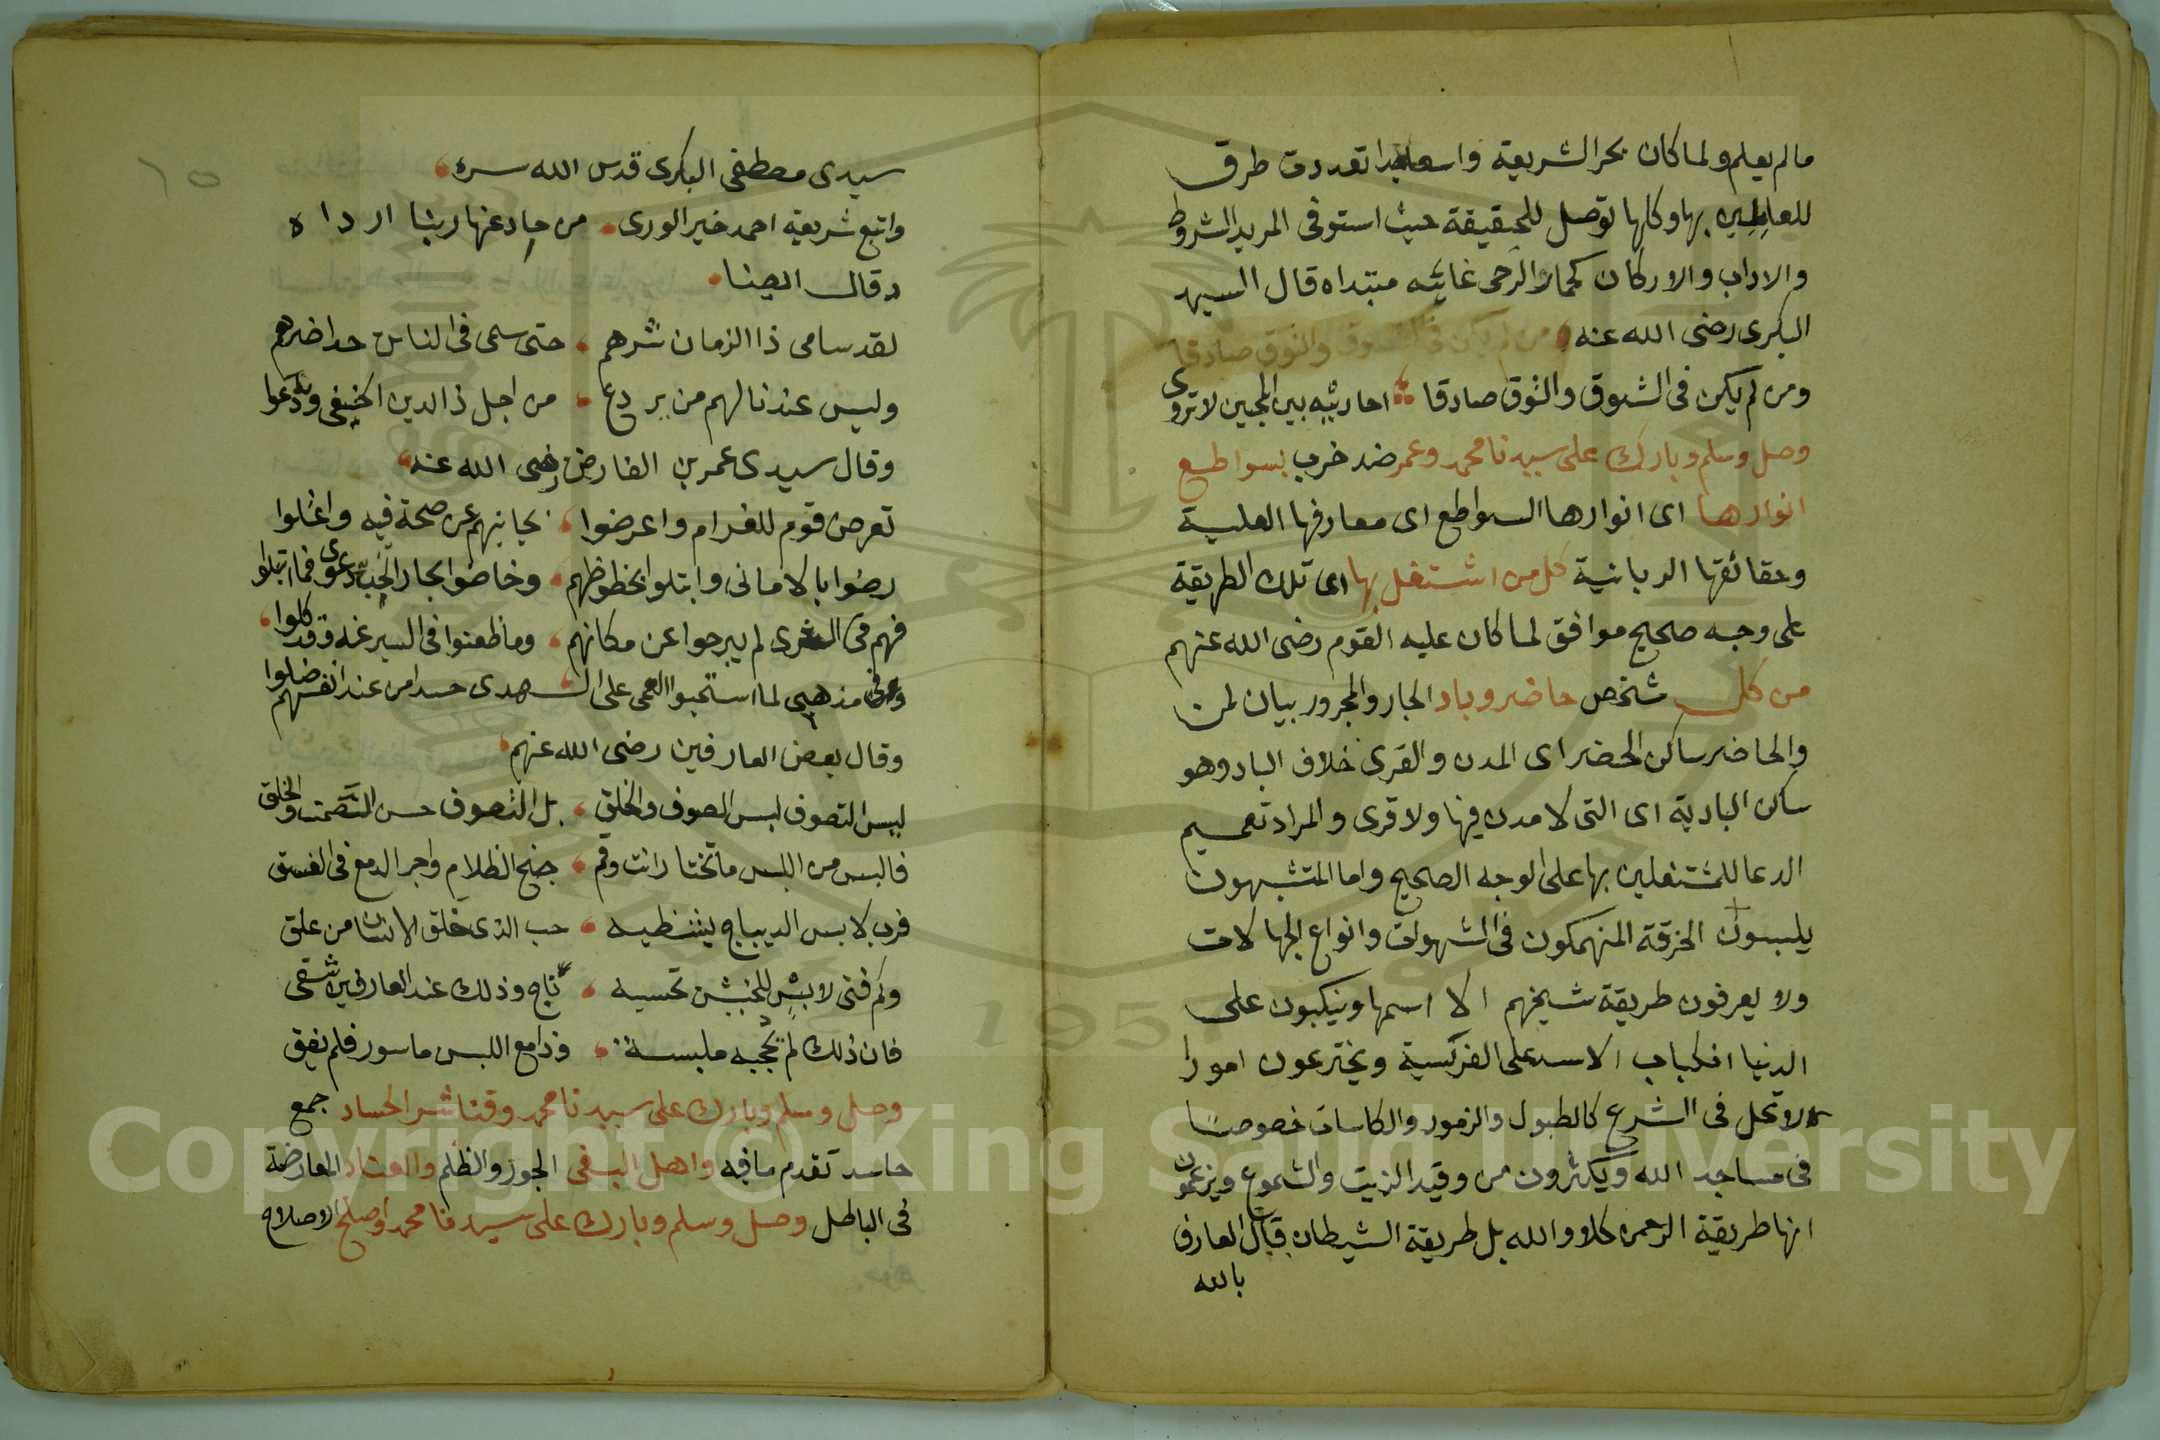 مالم يعلم ولما كان بحر الشريعة واسعا جدا تعددت طرق
للعاملين بها وكلها توصل للحقيقة حيث استوفى المريد الشروط
والاداب والاركان كحمار الرحى غايته مبتداه قال السيد
البكرى رضى الله عنه من لم يكن فى الشوق والذوق صادقا
ومن لم يكن فى الشوق والذوق صادقا احاديثه بين المحبين لا تروى
وصل وسلم وبارك على سيدنا محمد وعمر ضد خرب بسواطع
انوارها اى انوارها السواطع اى معارفها العلية
وحقائقها الربانية كل من اشتغل بها اى تلك الطريقة
على وجه صحيح موافق لما كان عليه القوم رضى الله عنهم
من كل شخص حاضر وباد الجار والمجرور بيان لمن
والحاضر ساكن الحضر اى المدن والقرى خلاف الباد وهو
ساكن البادية اى التى لا مدن فيها ولا قرى والمراد تعميم
الدعا للمشتغلين بها على الوجه الصحيح واما المتشبهون
يلبسون الخرقة المنهمكون فى الشهوات وانواع الجهالات
ولا يعرفون طريقة شيخهم الا اسمها وينكبون على
الدنيا انكباب الاسد على الفريسة ويخترعون امورا
لا تحل فى الشرع كالطبول والزمور والكاسات خصوصا
فى مساجد الله ويكثرون من وقيد الزيت والشموع ويزعمون
انها طريقة الرحمن كلا والله بل طريقة الشيطان قال العارف
بالله
١٥
سيدى مصطفى البكرى قدس الله سره
واتبع شريعة احمد خير الورى من حاد عنها ربنا ارداه
وقال ايضا
لقد سامى ذا الزمان شرهم حتى سمى فى الناس حداضرهم
وليس عندنا لهم من يردع من اجل ذا الدين الحنيفى ودعوا
وقال سيدى عمر بن الفارض رضى الله عنه
تعرض قوم للغرام واعرضوا بجانبهم عن صحة فيه واعتلوا
رضوا بالامانى وابتلوا بحظوظهم وخاضوا بحار الحب دعوى فما ابتلوا
فهم فى السرى لم يبرحوا عن مكانهم وما ظعنوا فى السير عنه وقد كلوا
وعن مذهبى لما استحبوا العمى على الهدى حسدا من عند انفسهم ضلوا
وقال بعض العارفين رضى الله عنهم
ليس التصوف لبس الصوف والخلق بل التصوف حسن الصمت والخلق
فالبس من اللبس ما تختار انت وقم جنح الظلام واجر الدمع فى الغسق
فرب لابس الديباج يشظيه حب الذى خلق الانسان من علق
وكم فتى لابس للخيش تحسبه ناج وذلك عند العارفين شقى
فان ذلك لم تحجبه ملبسة وذا مع اللبس ماسور فلم يفق
وصل وسلم وبارك على سيدنا محمد وقنا شر الحساد جمع
حاسد تقدم ما فيه واهل البغى الجور والظلم والعناد المعارضة
فى الباطل وصل وسلم وبارك على سيدنا محمد واصلح الاصلاح
Copyright © King Saud University
1957